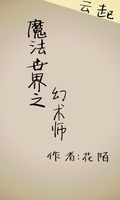 云起
魔法世界之
幻术师
作者:花陌